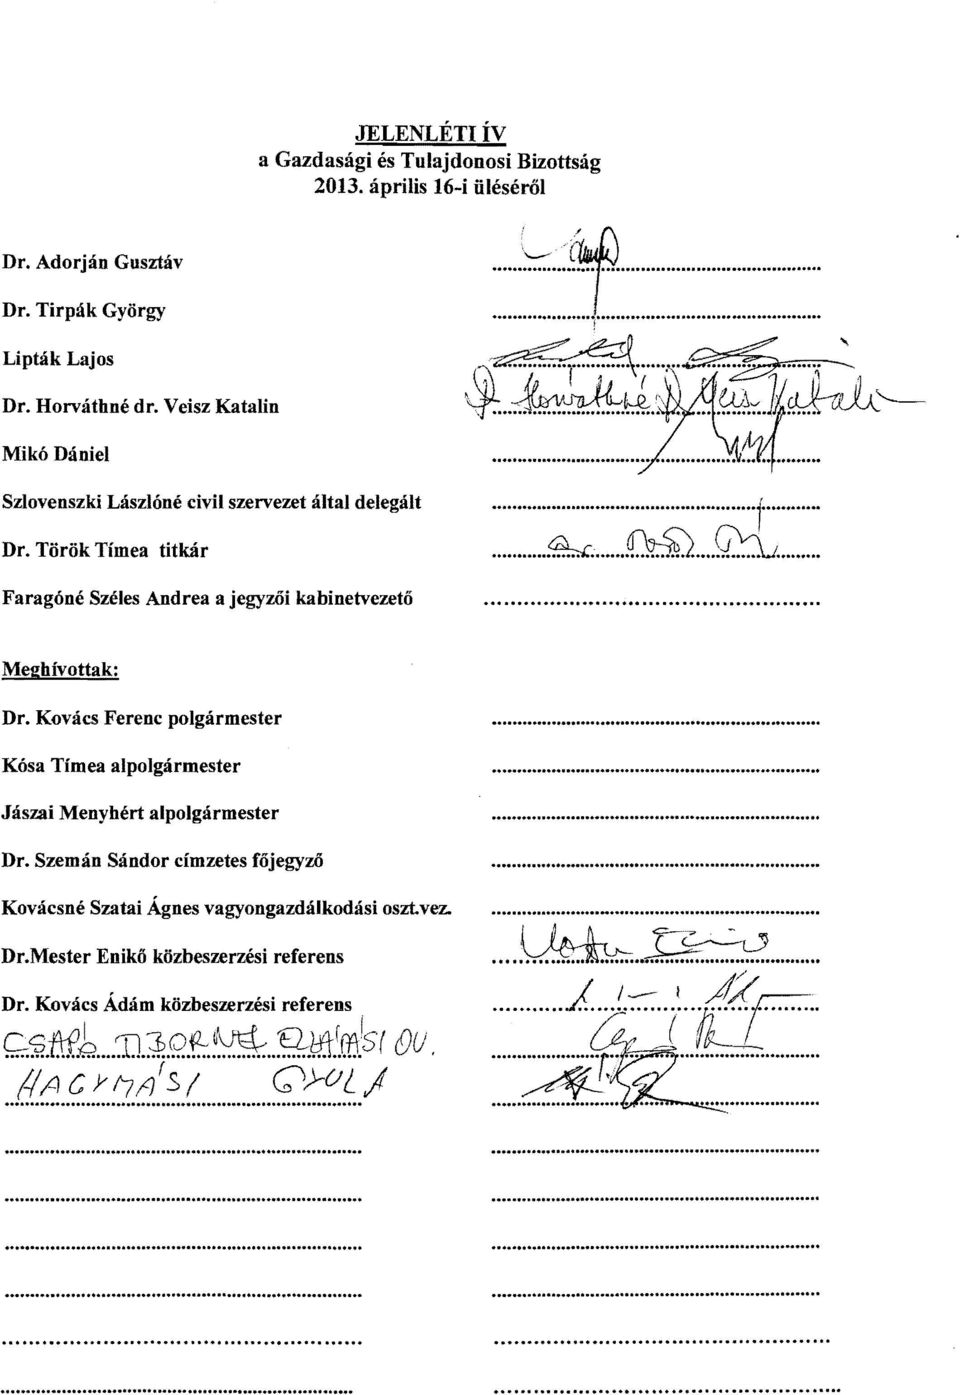 JELENLÉTI ÍV
a Gazdasági és Tulajdonosi Bizottság
2013. április 16-i üléséről
Dr. Adorján Gusztáv
Dr. Tirpák György
Lipták Lajos
Dr. Horváthné dr. Veisz Katalin Dr Horváthné Dr Veisz Katalin
Mikó Dániel
Szlovenszki Lászlóné civil szervezet által delegált
Dr. Török Tímea titkár
Faragóné Széles Andrea a jegyzői kabinetvezető
Meghívottak:
Dr. Kovács Ferenc polgármester
Kósa Tímea alpolgármester
Jászai Menyhért alpolgármester
Dr. Szemán Sándor címzetes főjegyző
Kovácsné Szatai Ágnes vagyongazdálkodási oszt.vez.
Dr.Mester Enikő közbeszerzési referens
Dr. Kovács Ádám közbeszerzési referens
CSAPÓ TIBORNÉ
HAGYMÁSI GYULA